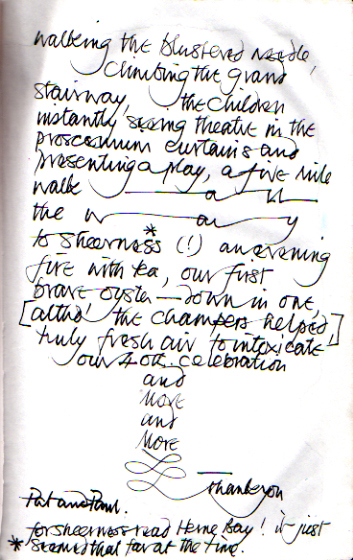 walking the blustered needle,
climbing the grand
stairway, the children
instantly seeing theatre in the
proscenium curtains and
presenting a play, a five mile
walk a ll
the w a y
to sheerness* (!) an evening
fire with tea, our first
brave oyster — down in one,
[altho' the champers helped]
truly fresh air to intoxicate
our 40th celebration
and
more
and
more
Thankyou
Pat and Paul.
for sheerness read Herne Bay! it just
* seemed that far at the time.